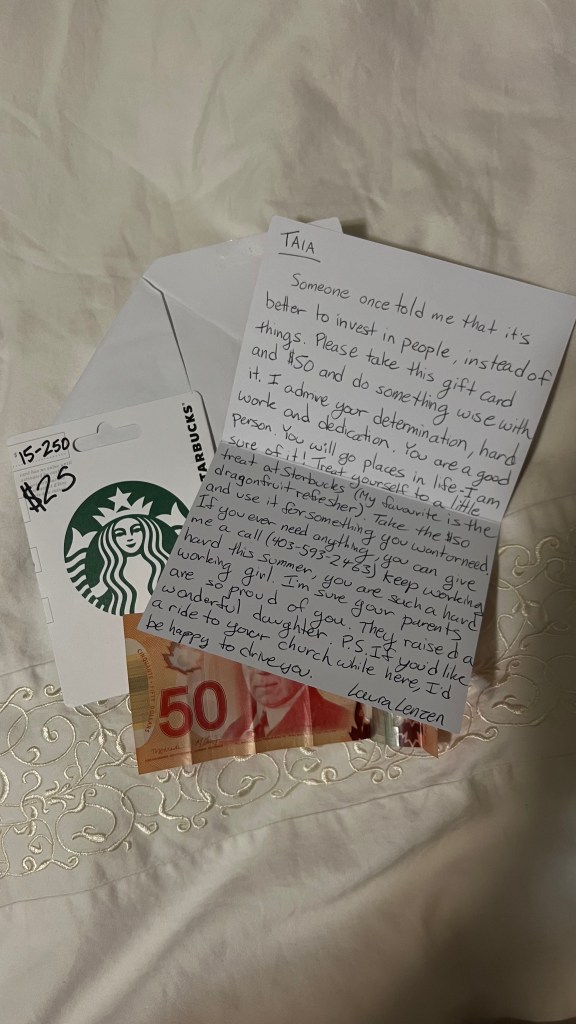 TAIA
Someone once told me that it's
better to invest in people, instead of
things. Please take this gift card
and $50 and do something wise with
it. I admire your determination, hard
work and dedication. You are a good
person. You will go places in life - I am
sure of it! Treat yourself to a little
treat at Starbucks (My favourite is the
dragonfruit refresher). Take the $50
and use it for something you want or need.
If you ever need anything, you can give
me a call (403-593-2453) Keep working
hard this summer, you are such a hard
working girl. I'm sure your parents
are so proud of you. They raised a
wonderful daughter. P.S. If you'd like
a ride to your church while here, I'd
be happy to drive you.
Laura Lenzen
$15-250
$25
STARBUCKS®
50